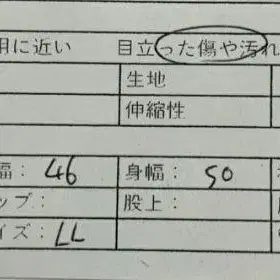 用に近い 目立った傷や汚れ
生地
伸縮性
幅： 46 身幅： 50
ップ： 股上：
イズ： LL